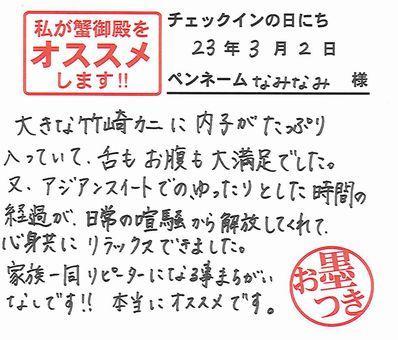 私が蟹御殿を
オススメ
します!!
チェックインの日にち
23年3月2日
ペンネーム なみなみ 様
大きな竹崎カニに内子がたっぷり
入っていて、舌もお腹も大満足でした。
又、アジアンスイートでのゆったりとした時間の
経過が、日常の喧騒から解放してくれて、
心身共にリラックスできました。
家族一同リピーターになる事まちがい
なしです!! 本当にオススメです。
お墨つき